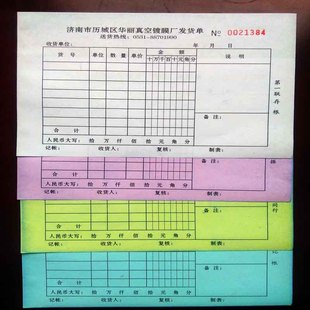 济南市历城区华丽真空镀膜厂发货单
送货热线：0531-88701900
№ 0021384
收货单位：
年 月 日
货号 单位 数量 单价 金额 说明
十万千百十元角分
第一联存根
备注：
合计
人民币大写： 拾 万 仟 佰 拾 元 角 分
记帐： 收货人： 复核： 制表：
备注：
合计
人民币大写： 拾 万 仟 佰 拾 元 角 分
记帐： 收货人： 复核： 制表：
备注：
合计
人民币大写： 拾 万 仟 佰 拾 元 角 分
记帐： 收货人： 复核： 制表：
备注：
合计
人民币大写： 拾 万 仟 佰 拾 元 角 分
记帐： 收货人： 复核： 制表：